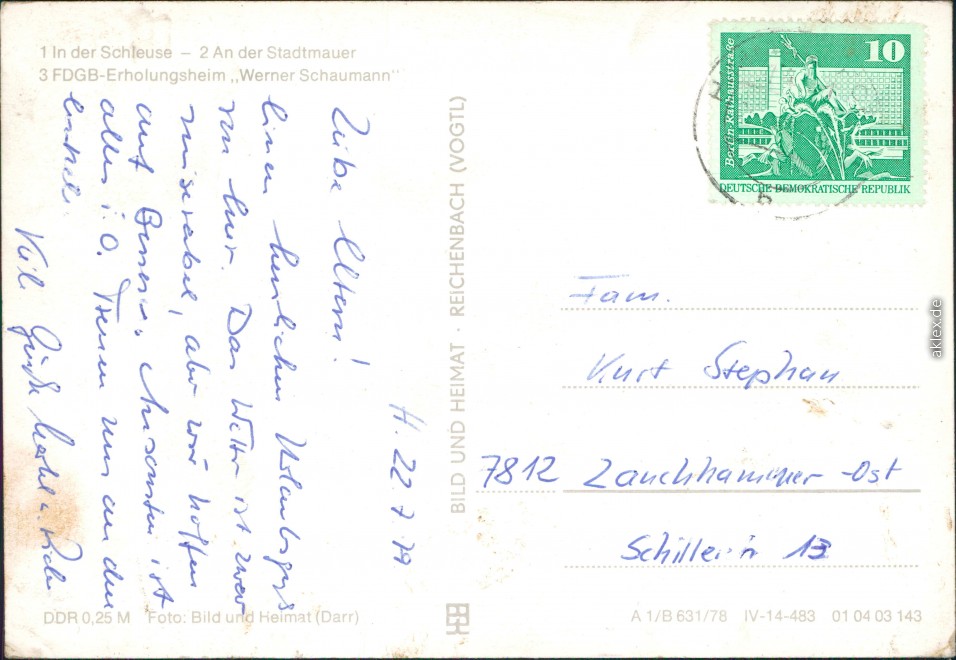 1 In der Schleuse – 2 An der Stadtmauer
3 FDGB-Erholungsheim „Werner Schaumann"
H. 22. 7. 79
Liebe Eltern!
Einen herzlichen Urlaubsgruß
von hier. Das Wetter ist zwar
miserabel, aber wir hoffen
auf Besserung. Ansonsten ist
alles i. O. Freuen uns an den
Viele Grüße
BILD UND HEIMAT · REICHENBACH (VOGTL)
10
Berlin-Rathausstraße
DEUTSCHE DEMOKRATISCHE REPUBLIK
Fam.
Kurt Stephan
7812 Lauchhammer-Ost
Schillerstr 13
DDR 0,25 M Foto: Bild und Heimat (Darr)
A 1/B 631/78 IV-14-483 01 04 03 143
aklex.de